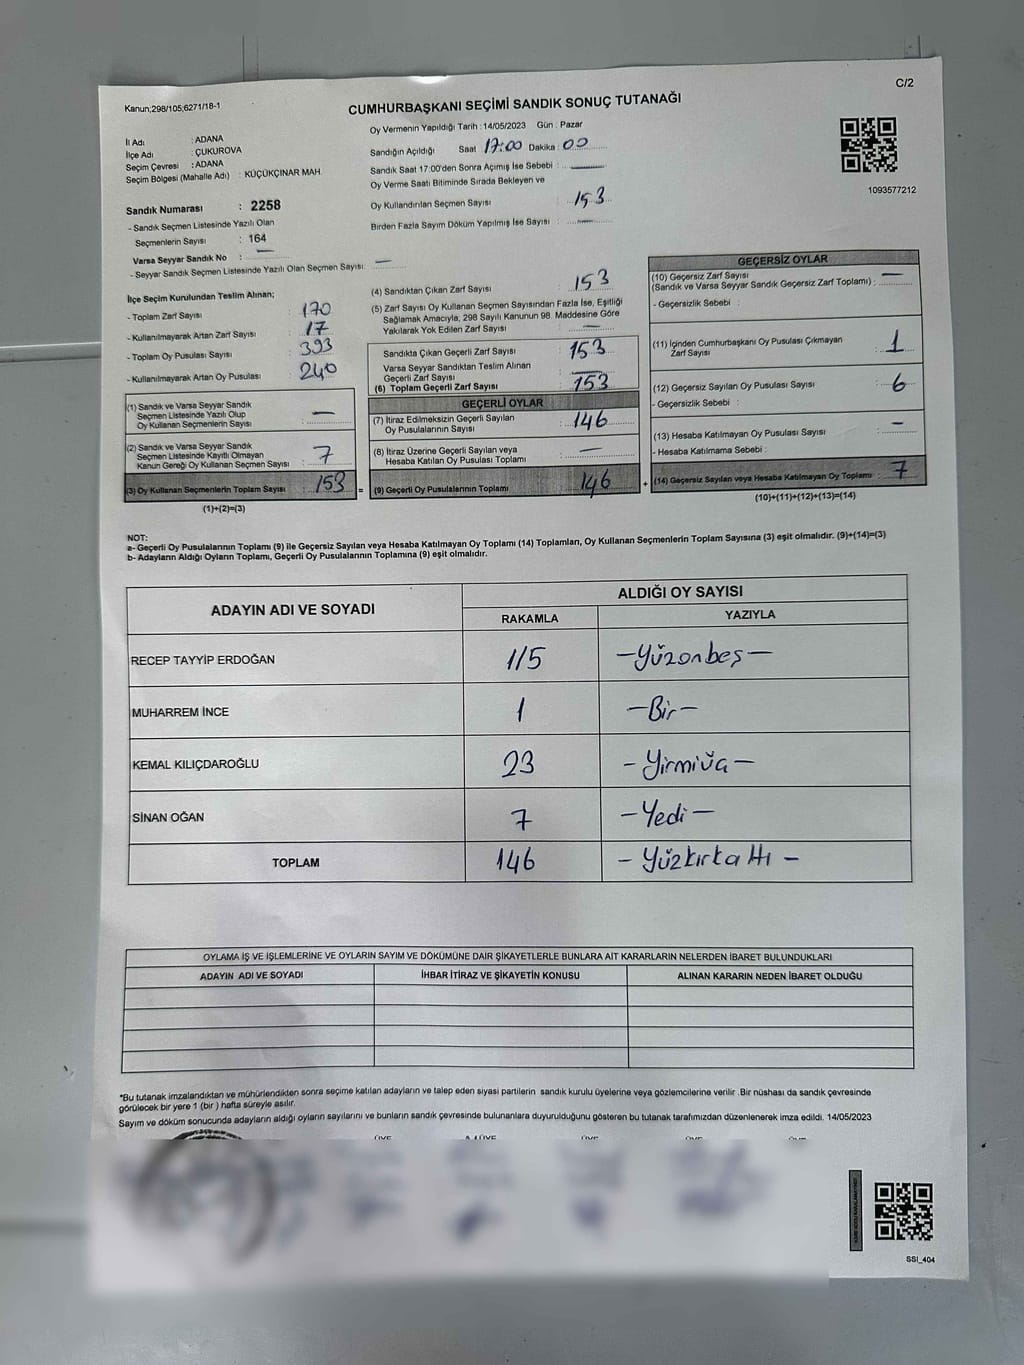 Kanun;298/105;6271/18-1
C/2
CUMHURBAŞKANI SEÇİMİ SANDIK SONUÇ TUTANAĞI
İl Adı : ADANA
İlçe Adı : ÇUKUROVA
Seçim Çevresi : ADANA
Seçim Bölgesi (Mahalle Adı) : KÜÇÜKÇINAR MAH.
Sandık Numarası : 2258
- Sandık Seçmen Listesinde Yazılı Olan
Seçmenlerin Sayısı : 164
Varsa Seyyar Sandık No : —
- Seyyar Sandık Seçmen Listesinde Yazılı Olan Seçmen Sayısı: —
Oy Vermenin Yapıldığı Tarih : 14/05/2023 Gün : Pazar
Sandığın Açıldığı Saat 17:00 Dakika : 00
Sandık Saat 17:00'den Sonra Açımış İse Sebebi : —
Oy Verme Saati Bitiminde Sırada Bekleyen ve
Oy Kullandırılan Seçmen Sayısı : 153
Birden Fazla Sayım Döküm Yapılmış İse Sayısı : —
1093577212
İlçe Seçim Kurulundan Teslim Alınan;
- Toplam Zarf Sayısı : 170
- Kullanılmayarak Artan Zarf Sayısı : 17
- Toplam Oy Pusulası Sayısı : 393
- Kullanılmayarak Artan Oy Pusulası : 240
(1) Sandık ve Varsa Seyyar Sandık
Seçmen Listesinde Yazılı Olup
Oy Kullanan Seçmenlerin Sayısı : —
(2) Sandık ve Varsa Seyyar Sandık
Seçmen Listesinde Kayıtlı Olmayan
Kanun Gereği Oy Kullanan Seçmen Sayısı : 7
(3) Oy Kullanan Seçmenlerin Toplam Sayısı : 153
(1)+(2)=(3)
(4) Sandıktan Çıkan Zarf Sayısı : 153
(5) Zarf Sayısı Oy Kullanan Seçmen Sayısından Fazla İse, Eşitliği
Sağlamak Amacıyla; 298 Sayılı Kanunun 98. Maddesine Göre
Yakılarak Yok Edilen Zarf Sayısı : —
Sandıkta Çıkan Geçerli Zarf Sayısı : 153
Varsa Seyyar Sandıktan Teslim Alınan
Geçerli Zarf Sayısı : —
(6) Toplam Geçerli Zarf Sayısı : 153
GEÇERLİ OYLAR
(7) İtiraz Edilmeksizin Geçerli Sayılan
Oy Pusulalarının Sayısı : 146
(8) İtiraz Üzerine Geçerli Sayılan veya
Hesaba Katılan Oy Pusulaları Toplamı : —
= (9) Geçerli Oy Pusulalarının Toplamı : 146
GEÇERSİZ OYLAR
(10) Geçersiz Zarf Sayısı
(Sandık ve Varsa Seyyar Sandık Geçersiz Zarf Toplamı) : —
- Geçersizlik Sebebi :
(11) İçinden Cumhurbaşkanı Oy Pusulası Çıkmayan
Zarf Sayısı : 1
(12) Geçersiz Sayılan Oy Pusulası Sayısı : 6
- Geçersizlik Sebebi :
(13) Hesaba Katılmayan Oy Pusulası Sayısı : -
- Hesaba Katılmama Sebebi :
+ (14) Geçersiz Sayılan veya Hesaba Katılmayan Oy Toplamı : 7
(10)+(11)+(12)+(13)=(14)
NOT:
a- Geçerli Oy Pusulalarının Toplamı (9) ile Geçersiz Sayılan veya Hesaba Katılmayan Oy Toplamı (14) Toplamları, Oy Kullanan Seçmenlerin Toplam Sayısına (3) eşit olmalıdır. (9)+(14)=(3)
b- Adayların Aldığı Oyların Toplamı, Geçerli Oy Pusulalarının Toplamına (9) eşit olmalıdır.
ADAYIN ADI VE SOYADI ALDIĞI OY SAYISI
RAKAMLA YAZIYLA
RECEP TAYYİP ERDOĞAN 115 —Yüzonbeş—
MUHARREM İNCE 1 —Bir—
KEMAL KILIÇDAROĞLU 23 —Yirmiüç—
SİNAN OĞAN 7 —Yedi—
TOPLAM 146 —Yüzkırkaltı—
OYLAMA İŞ VE İŞLEMLERİNE VE OYLARIN SAYIM VE DÖKÜMÜNE DAİR ŞİKAYETLERLE BUNLARA AİT KARARLARIN NELERDEN İBARET BULUNDUKLARI
ADAYIN ADI VE SOYADI İHBAR İTİRAZ VE ŞİKAYETİN KONUSU ALINAN KARARIN NEDEN İBARET OLDUĞU
*Bu tutanak imzalandıktan ve mühürlendikten sonra seçime katılan adayların ve talep eden siyasi partilerin sandık kurulu üyelerine veya gözlemcilerine verilir .Bir nüshası da sandık çevresinde
görülecek bir yere 1 (bir ) hafta süreyle asılır.
Sayım ve döküm sonucunda adayların aldığı oyların sayılarını ve bunların sandık çevresinde bulunanlara duyurulduğunu gösteren bu tutanak tarafımızdan düzenlenerek imza edildi. 14/05/2023
SSI_404